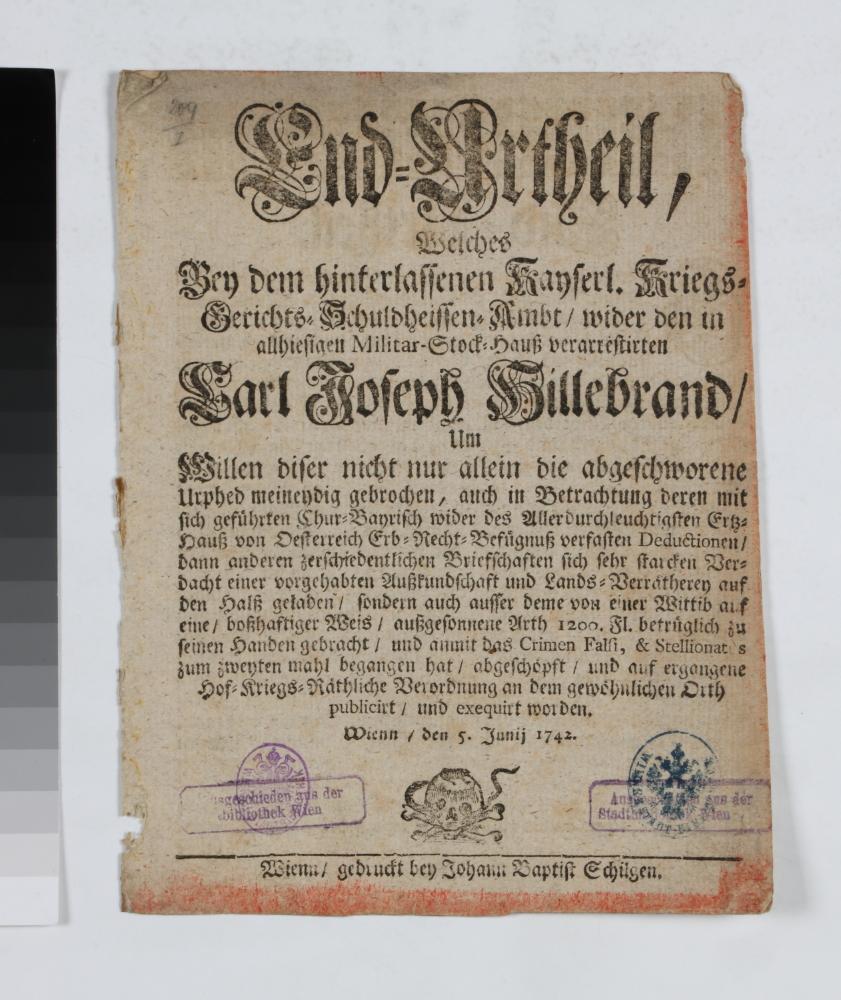 209
End-Urtheil,
Welches
Bey dem hinterlassenen Kayserl. Kriegs-
Gerichts-Schuldheissen-Ambt / wider den in
allhiesigen Militar-Stock-Hauß verarrestirten
Carl Joseph Hillebrand /
Um
Willen diser nicht nur allein die abgeschworene
Urphed meineydig gebrochen, auch in Betrachtung deren mit
sich geführten Chur-Bayrisch wider des Allerdurchleuchtigsten Ertz-
Hauß von Oesterreich Erb-Recht-Befügnuß verfasten Deductionen /
dann anderen zerschiedentlichen Briefschaften sich sehr starcken Ver-
dacht einer vorgehabten Außkundschaft und Lands-Verrätherey auf
den Halß geladen / sondern auch ausser deme von einer Wittib auf
eine / boßhaftiger Weis / außgesonnene Arth 1200. Fl. betrüglich zu
seinen Handen gebracht / und anmit das Crimen Falsi, & Stellionatus
zum zweyten mahl begangen hat / abgeschöpft / und auf ergangene
Hof-Kriegs-Räthliche Verordnung an dem gewöhnlichen Orth
publicirt / und exequirt worden.
Wienn / den 5. Junij 1742.
Ausgeschieden aus der
Stadtbibliothek Wien
Ausgeschieden aus der
Stadtbibliothek Wien
Wienn / gedruckt bey Johann Baptist Schilgen.